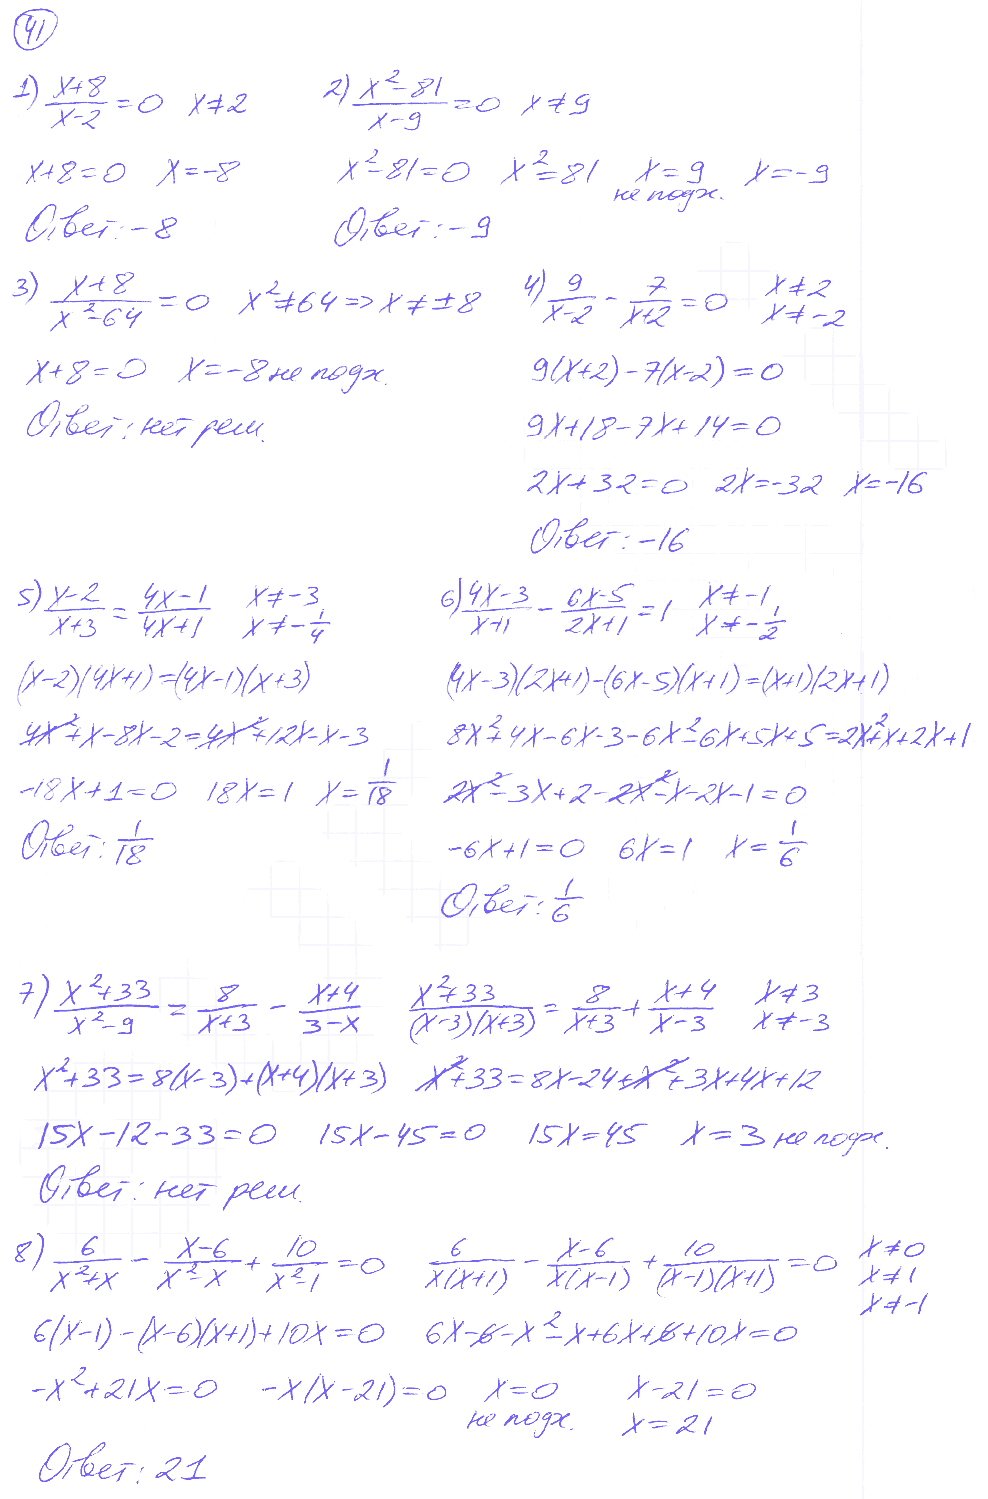 41
1) (x+8)/(x-2) = 0 x≠2
x+8=0 x=-8
Ответ: -8
2) (x²-81)/(x-9) = 0 x≠9
x²-81=0 x²=81 x=9 не подх. x=-9
Ответ: -9
3) (x+8)/(x²-64) = 0 x²≠64 => x≠±8
x+8=0 x=-8 не подх.
Ответ: нет реш.
4) 9/(x-2) - 7/(x+2) = 0 x≠2 x≠-2
9(x+2)-7(x-2)=0
9x+18-7x+14=0
2x+32=0 2x=-32 x=-16
Ответ: -16
5) (x-2)/(x+3) = (4x-1)/(4x+1) x≠-3 x≠-1/4
(x-2)(4x+1)=(4x-1)(x+3)
4x²+x-8x-2=4x²+12x-x-3
-18x+1=0 18x=1 x=1/18
Ответ: 1/18
6) (4x-3)/(x+1) - (6x-5)/(2x+1) = 1 x≠-1 x≠-1/2
(4x-3)(2x+1)-(6x-5)(x+1)=(x+1)(2x+1)
8x²+4x-6x-3-6x²-6x+5x+5=2x²+x+2x+1
2x²-3x+2-2x²-x-2x-1=0
-6x+1=0 6x=1 x=1/6
Ответ: 1/6
7) (x²+33)/(x²-9) = 8/(x+3) - (x+4)/(3-x) (x²+33)/((x-3)(x+3)) = 8/(x+3) + (x+4)/(x-3) x≠3 x≠-3
x²+33=8(x-3)+(x+4)(x+3) x²+33=8x-24+x²+3x+4x+12
15x-12-33=0 15x-45=0 15x=45 x=3 не подх.
Ответ: нет реш.
8) 6/(x²+x) - (x-6)/(x²-x) + 10/(x²-1) = 0 6/(x(x+1)) - (x-6)/(x(x-1)) + 10/((x-1)(x+1)) = 0 x≠0 x≠1 x≠-1
6(x-1)-(x-6)(x+1)+10x=0 6x-6-x²-x+6x+6+10x=0
-x²+21x=0 -x(x-21)=0 x=0 не подх. x-21=0 x=21
Ответ: 21